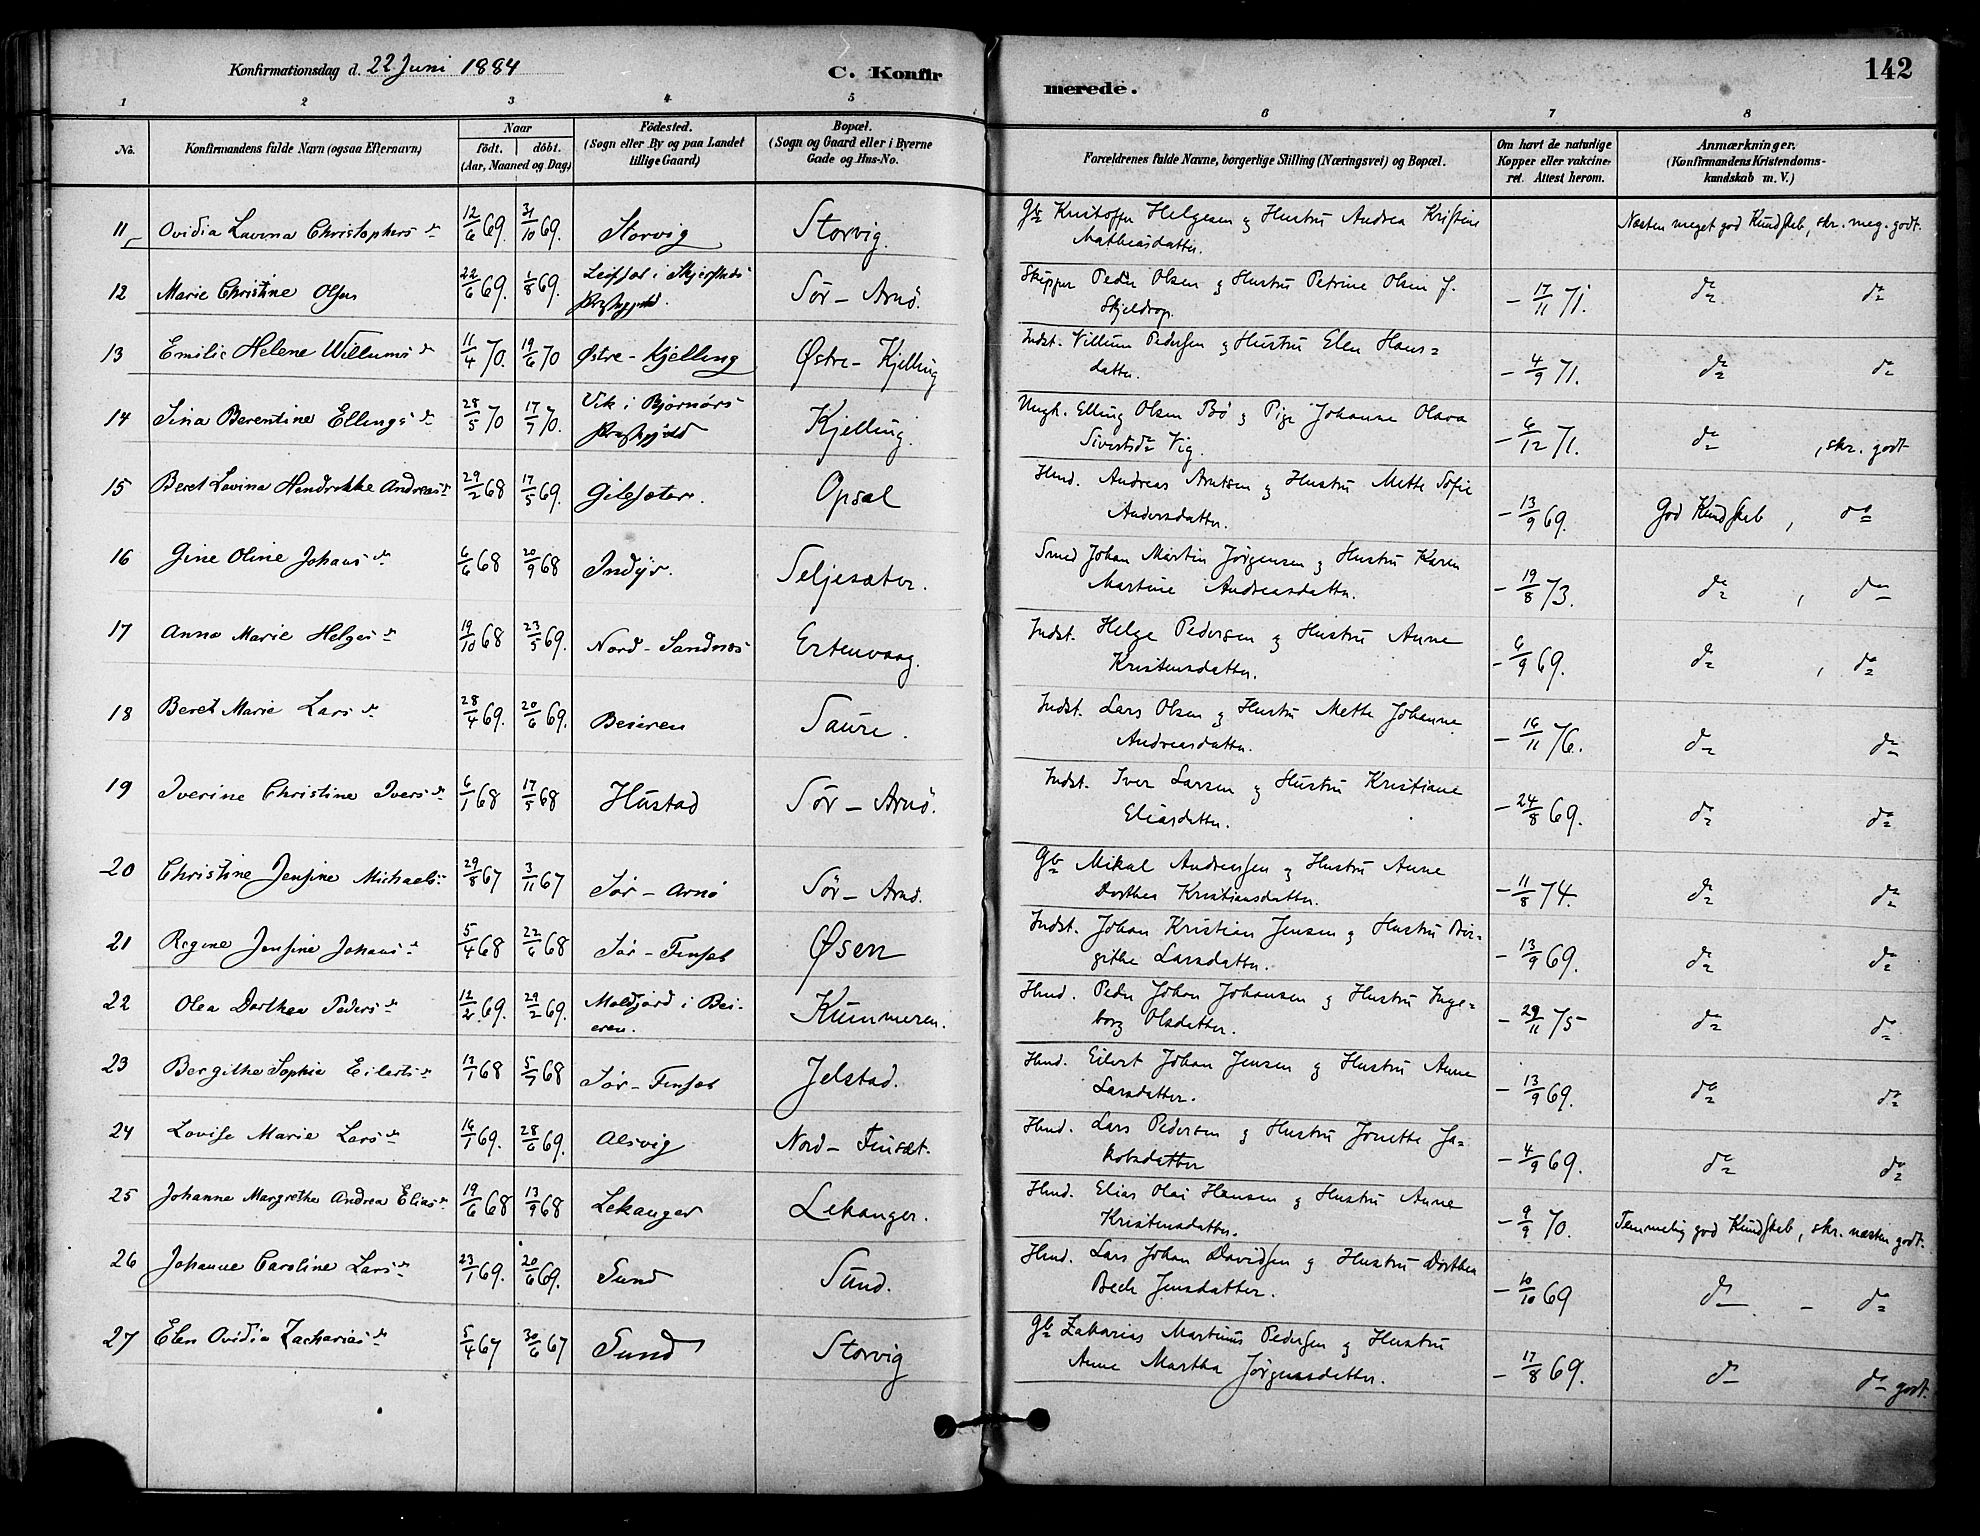 Konfirmationsdag d. 22 Juni 1884
C. Konfir
merede.
142
1 2 3 4 5 6 7 8
No.
Konfirmandens fulde Navn (ogsaa Efternavn)
Naar
födt. döbt.
(Aar, Maaned og Dag)
Födested.
(Sogn eller By og paa Landet
tillige Gaard)
Bopæl.
(Sogn og Gaard eller i Byerne
Gade og Hus-No.
Forældrenes fulde Navne, borgerlige Stilling (Næringsvei) og Bopæl.
Om havt de naturlige
Kopper eller vakcine-
ret. Attest herom.
Anmærkninger.
(Konfirmandens Kristendoms-
kundskab m. V.)
11 Ovidia Lavina Christophers d 12/6 69. 31/10 69. Storvig Storvig. Kristoffer Helgesen og Hustru Andrea Kristine
Mathiasdatter. Næsten meget god Kundskab, skr. meg. godt.
12 Marie Christine Olsen 22/6 69. 1/8 69. i Skjerstad
Sør-Arnö. Skipper Peder Olsen og Hustru Petrine Olsen f.
Skjeldrop. - 17/11 71. do do
13 Emilie Helene Willums d 11/4 70. 19/6 70 Østre-Kjelling Østre-Kjelling Indst. Villum Pedersen og Hustru Elen Hans=
datter. - 4/9 71. do do
14 Sina Berentine Ellings d 28/5 70 17/7 70. Vik i Bjørnørs
Kjelling. Ungk. Elling Olsen Bö og Pige Johanna Olava
Sivertsd. Vig. - 6/12 71. do , skr. godt
15 Beret Lovina Hendrikke Andreas d 29/2 68 17/5 69. Gilesæter. Opsal Hmd. Andreas Arntsen og Hustru Mette Sofie
Andersdatter. - 13/9 69. God Kundskab , do
16 Gine Oline Johans d 6/6 68 20/9 68 Indyr. Seljesæter. Smed Johan Martin Jørgensen og Hustru Karen
Martine Andreasdatter. - 19/8 73. do , do
17 Anna Marie Helges d 19/10 68 23/5 69. Nord-Sandnes Ertenvaag. Indst. Helge Pedersen og Hustru Anne
Kristensdatter. - 6/9 69. do , do
18 Beret Marie Lars d 28/4 69. 20/6 69. Beieren Saure. Indst. Lars Olsen og Hustru Mette Johanna
Andreasdatter. - 16/11 76. do do
19 Iverine Christine Ivers d 6/1 68 17/5 68 Hustad Sør-Arnö. Indst. Iver Larsen og Hustru Kristiane
Eliasdatter. - 24/8 69. do do
20 Christine Jensine Michaels 29/8 67 3/11 67 Sør-Arnö Sør-Arnö. Gb Mikal Andreassen og Hustru Anne
Dorthea Kristiansdatter. - 11/8 74. do do
21 Regine Jensine Johans d 5/4 68 22/6 68 Sør-Finset Øsen Indst. Johan Kristian Jensen og Hustru Bir-
githe Larsdatter. - 13/9 69. do do
22 Olea Dorthea Peders d 12/2 69. 29/2 69. Moldjord i Bei-
eren. Kummeren. Hmd. Peder Johan Johansen og Hustru Inge=
borg Olsdatter. - 29/11 75 do do
23 Bergithe Sophie Eilerts d 13/1 68 5/7 68 Sør-Finset Jelstad. Hmd. Eilert Johan Jensen og Hustru Anne
Larsdatter. - 13/9 69. do do
24 Lovise Marie Lars d 16/1 69. 28/6 69. Alsvig Nord-Finset. Hmd. Lars Pedersen og Hustru Jonette Ja-
kobsdatter - 4/9 69. do do
25 Johanna Margrethe Andrea Elias d 19/6 68 13/9 68 Lekanger Lekanger. Hmd. Elias Olai Hansen og Hustru Anne
Kristensdatter. - 9/9 70. Temmelig god Kundskab, skr. næsten godt.
26 Johanne Caroline Lars d 23/1 69. 20/6 69. Sund Sund. Hmd. Lars Johan Davidsen og Hustru Dorthea
Bech Jensdatter. - 10/10 69 do - do
27 Elen Ovidia Zacharias d 5/4 67 30/6 67 Sund Storvig Gb Zakarias Martinus Pedersen og Hustru
Anne Martha Jørgensdatter. - 17/8 69. do do godt.